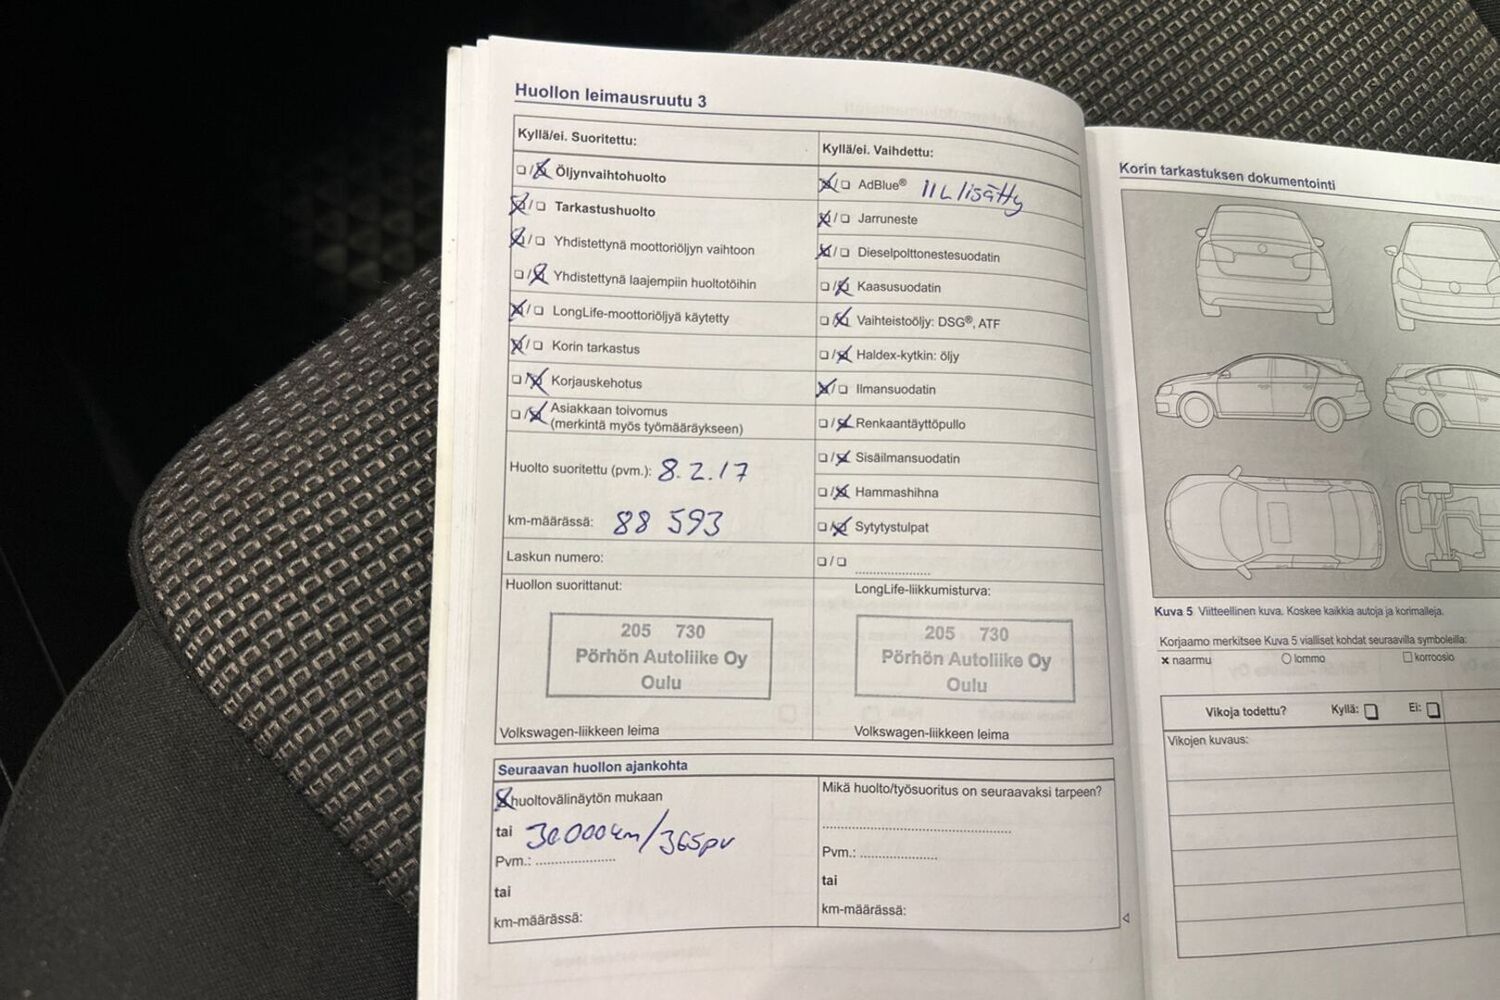 Huollon leimausruutu 3
Kyllä/ei. Suoritettu:
Öljynvaihtohuolto
Tarkastushuolto
Yhdistettynä moottoriöljyn vaihtoon
Yhdistettynä laajempiin huoltotöihin
LongLife-moottoriöljyä käytetty
Korin tarkastus
Korjauskehotus
Asiakkaan toivomus
(merkintä myös työmääräykseen)
Huolto suoritettu (pvm.): 8.2.17
km-määrässä: 88 593
Laskun numero:
Huollon suorittanut:
205 730
Pörhön Autoliike Oy
Oulu
Volkswagen-liikkeen leima
Kyllä/ei. Vaihdettu:
AdBlue® 11L lisätty
Jarruneste
Dieselpolttonestesuodatin
Kaasusuodatin
Vaihteistoöljy: DSG®, ATF
Haldex-kytkin: öljy
Ilmansuodatin
Renkaantäyttöpullo
Sisäilmansuodatin
Hammashihna
Sytytystulpat
LongLife-liikkumisturva:
205 730
Pörhön Autoliike Oy
Oulu
Volkswagen-liikkeen leima
Seuraavan huollon ajankohta
huoltovälinäytön mukaan
tai 30 000 km/365pv
Pvm.:
tai
km-määrässä:
Mikä huolto/työsuoritus on seuraavaksi tarpeen?
Pvm.:
tai
km-määrässä:
Korin tarkastuksen dokumentointi
Kuva 5 Viitteellinen kuva. Koskee kaikkia autoja ja korimalleja.
Korjaamo merkitsee Kuva 5 vialliset kohdat seuraavilla symboleilla:
x naarmu lommo korroosio
Vikoja todettu? Kyllä: Ei:
Vikojen kuvaus: